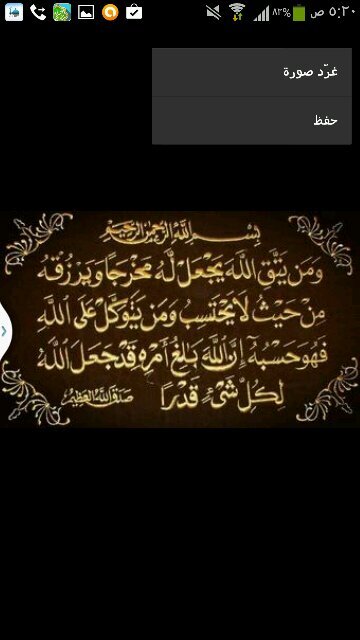 ٥:٢٠ ص ٨٣%
غرّد صورة
حفظ
بِسْمِ اللَّهِ الرَّحْمَنِ الرَّحِيمِ
وَمَن يَتَّقِ اللَّهَ يَجْعَل لَّهُ مَخْرَجًا وَيَرْزُقْهُ
مِنْ حَيْثُ لَا يَحْتَسِبُ وَمَن يَتَوَكَّلْ عَلَى اللَّهِ
فَهُوَ حَسْبُهُ إِنَّ اللَّهَ بَالِغُ أَمْرِهِ قَدْ جَعَلَ اللَّهُ
لِكُلِّ شَيْءٍ قَدْرًا صدق الله العظيم